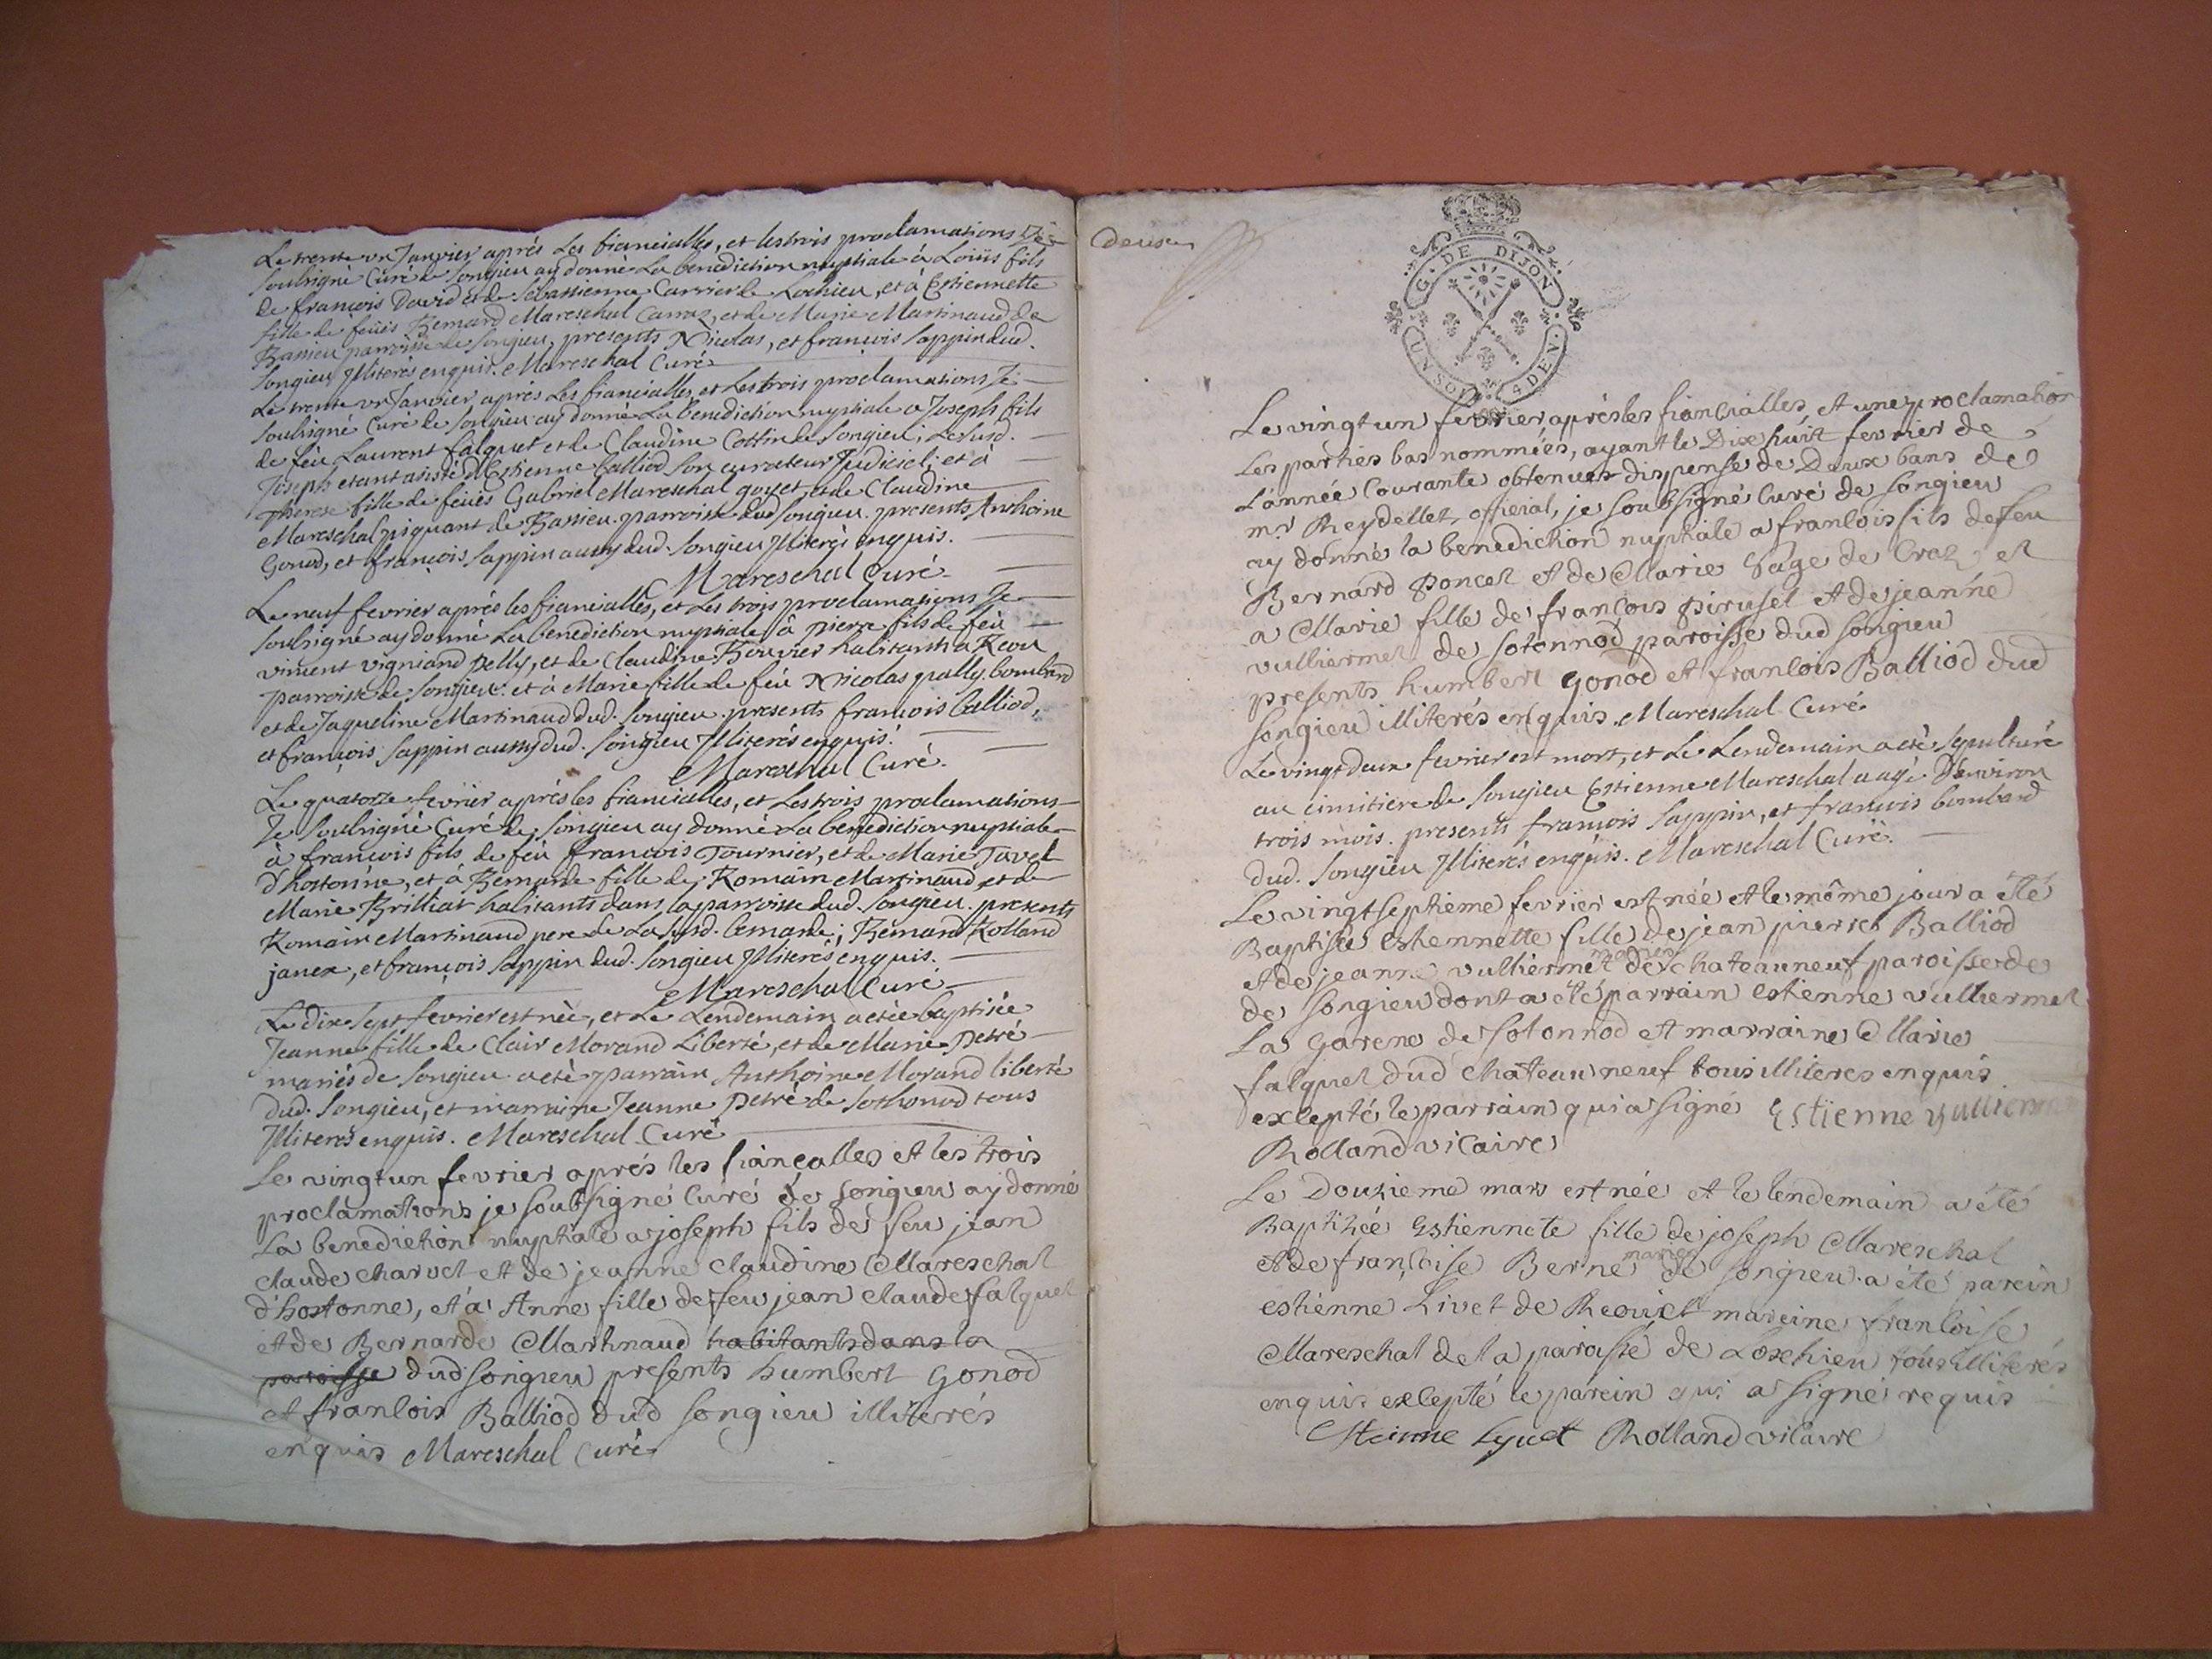 Le trente un Janvier aprés Les fiancialles, et les trois proclamations Je
soubsigné Curé de Songieu ay donné La benediction nuptiale à Loüis fils
de francois David et de Sebastienne Carrier de Lochieu, et à Estiennette
fille de feüis Bernard Mareschal Carraz, et de Marie Martinaud de
Bassieu parroisse de Songieu, presents Nicolas, et francois Sappin dud.
Songieu Illiterés enquis. Mareschal Curé
Le trente un Janvier aprés Les fiancialles, et Les trois proclamations Je
soubsigné Curé de Songieu ay donné La benediction nuptiale a Joseph fils
de feu Laurent falquet et de Claudine Cottin de Songieu; Le susd.
Joseph etant assisté d'Estienne Balliod son curateur Judiciel; et à
Therese fille de feües Gabriel Mareschal goyet, et de Claudine
Mareschal piquant de Bassieu parroisse dud Songieu. presents Anthoine
Gonod, et françois Sappin aussy dud. Songieu Illiterés enquis.
Mareschal Curé
Le neuf fevrier aprés les fiancialles, et Les trois proclamations Je
soubsigné ay donné La benediction nuptiale à pierre fils de feu
vincent vigniand pelly, et de Claudine Bouvier habitants a Reou
parroisse de Songieu. et à Marie fille de feu Nicolas pally bombard
et de Jaqueline Martinaud dud. Songieu. presents francois Balliod,
et françois Sappin aussy dud. Songieu Illiterés enquis.
Mareschal Curé.
Le quatorze fevrier aprés les fiancialles, et Les trois proclamations
Je soubsigné Curé de Songieu ay donné La benediction nuptiale
à francois fils de feu francois Tournier, et de Marie Tavel
d'hostonne, et à Bernarde fille de Romain Martinaud et de
Marie Brilliat habitants dans la parroisse dud. Songieu. presents
Romain Martinaud pere de La susd. bernarde; Bernard Rolland
janex, et françois Sappin dud. Songieu Illiterés enquis.
Mareschal Curé
Le dix sept fevrier est née, et Le Lendemain a eté baptisée
Jeanne fille de Clair Morand Liberté, et de Marie Petré
mariés de Songieu. a eté parrain Anthoine Morand liberté
dud. Songieu, et marraine Jeanne Petré de Sothonod tous
Illiterés enquis. Mareschal Curé
Le vingt un fevrier aprés les fiançalles et les trois
proclamations je soubsigné Curé de Songieu ay donné
La benediction nuptiale a joseph fils de feu jean
claude charvet et de jeanne claudine Mareschal
d'hostonne, et a Anne fille de feu jean claude falquet
et de Bernarde Martinaud habitants dans la
paroisse dud songieu presents humbert Gonod
et francois Balliod dud songieu illiterés
enquis Mareschal Curé
deux
G. DE DIJON
UN SOL 4 DEN.
Le vingt un fevrier aprés les fiancialles, et une proclamation
Les parties bas nommées, ayant le Dix huit fevrier de
L'année Courante obtenues dispense de Deux bans de
mr. Reydellet, official, je soubsigné Curé de songieu
ay donné la benediction nuptiale a francois fils de feu
Bernard poncet et de Marie Sage de Craz, et
a Marie fille de francois pirusel et de jeanne
vulliermet de sotonnod paroisse dud songieu
presents humbert gonod et francois Balliod dud
songieu illiterés enquis. Mareschal Curé
Le vingt deux fevrier est mort, et Le Lendemain a eté sepulturé
au cimitiere de Songieu Estienne Mareschal aagé D'environ
trois mois. presents françois Sappin, et francois bombard
dud. Songieu Illiterés enquis. Mareschal Curé.
Le vingt septieme fevrier est née et le même jour a été
Baptisée Estiennette fille de jean pierre Balliod
et de jeanne vulliermet mariés de chateauneuf paroisse de
de songieu dont a été parrain estienne vulliermet
La Garene de sotonnod et marraine Marie
falquet dud chateauneuf tous illiteres enquis
excepté le parrain qui a signé Estienne vullierme
Rolland vicaire
Le Douzieme mars est née et le lendemain a été
Baptizée Estiennete fille de joseph Mareschal
et de françoise Berne mariés de songieu. a été parein
estienne Livet de Reou et mareine francoise
Mareschal de la paroisse de Loxhieu tous illiterés
enquis excepté le parein qui a signé requis
Esteinne Lyuet Rolland vicaire